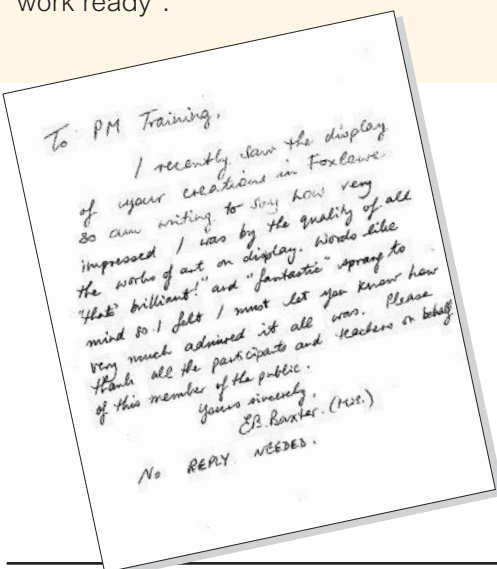 work ready".
To PM Training,
I recently saw the display
of your creations in Foxlowe
so am writing to say how very
impressed I was by the quality of all
the works of art on display. Words like
"that's brilliant!" and "fantastic" sprang to
mind so I felt I must let you know how
very much admired it all was. Please
thank all the participants and teachers on behalf
of this member of the public.
Yours sincerely,
EB. Baxter. (Mrs.)
No REPLY NEEDED.